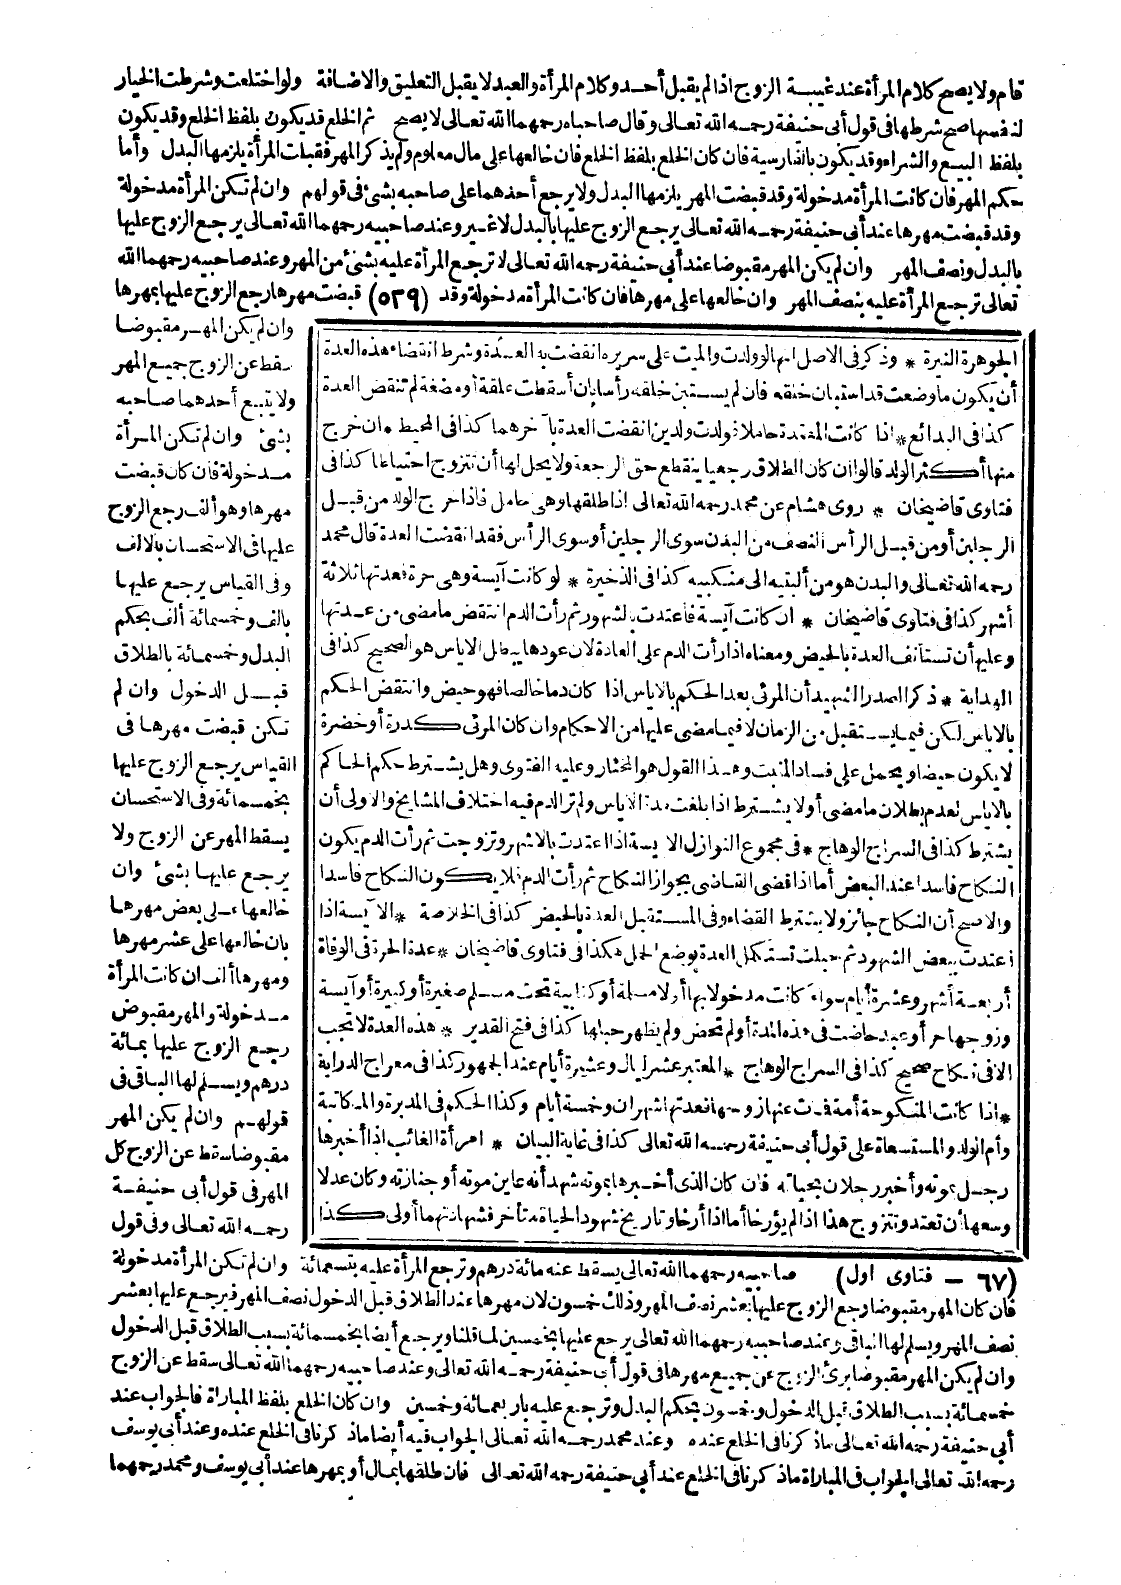 قام ولا يصح كلام المرأة عند غيبة الزوج اذا لم يقبل أحد وكلام المرأة والعبد لا يقبل التعليق والاضافة ولو اختلعت وشرطت الخيار
لنفسها صح شرطها فى قول أبى حنيفة رحمه الله تعالى وقال صاحباه رحمهما الله تعالى لا يصح ثم الخلع قد يكون بلفظ الخلع وقد يكون
بلفظ البيع والشراء وقد يكون بالفارسية فان كان الخلع بلفظ الخلع فان خالعها على مال معلوم ولم يذكر المهر فقبلت المرأة يلزمها البدل وأما
حكم المهر فان كانت المرأة مدخولة وقد قبضت المهر يلزمها البدل ولا يرجع أحدهما على صاحبه بشئ فى قولهم وان لم تكن المرأة مدخولة
وقد قبضت مهرها عند أبى حنيفة رحمه الله تعالى يرجع الزوج عليها بالبدل لا غير وعند صاحبيه رحمهما الله تعالى يرجع الزوج عليها
بالبدل ونصف المهر وان لم يكن المهر مقبوضا عند أبى حنيفة رحمه الله تعالى لا ترجع المرأة عليه بشئ من المهر وعند صاحبيه رحمهما الله
تعالى ترجع المرأة عليه بنصف المهر وان خالعها على مهرها فان كانت المرأة مدخولة وقد (٥٢٩) قبضت مهرها رجع الزوج عليها بمهرها
وان لم يكن المهر مقبوضا
سقط عن الزوج جميع المهر
ولا يتبع أحدهما صاحبه
بشئ وان لم تكن المرأة
مدخولة فان كان قبضت
مهرها وهو ألف رجع الزوج
عليها فى الاستحسان بالالف
وفى القياس يرجع عليها
بالف وخمسمائة ألف بحكم
البدل وخمسمائة بالطلاق
قبل الدخول وان لم
تكن قبضت مهرها فى
القياس يرجع الزوج عليها
بخمسمائة وفى الاستحسان
يسقط المهر عن الزوج ولا
يرجع عليها بشئ وان
خالعها على بعض مهرها
بان خالعها على عشر مهرها
ومهرها ألف ان كانت المرأة
مدخولة والمهر مقبوض
رجع الزوج عليها بمائة
درهم ويسلم لها الباقى فى
قولهم وان لم يكن المهر
مقبوضا سقط عن الزوج كل
المهر فى قول أبى حنيفة
رحمه الله تعالى وفى قول
الجوهرة النيرة * وذكر فى الاصل انها لو ولدت والميت على سريره انقضت به العدة وشرط انقضاء هذه العدة
أن يكون ما وضعت قد استبان خلقه فان لم يستبن خلقه رأسا بان أسقطت علقة أو مضغة لم تنقض العدة
كذا فى البدائع * اذا كانت المعتدة حاملا فولدت ولدين انقضت العدة بآخرهما كذا فى المحيط * وان خرج
منها أكثر الولد قالوا ان كان الطلاق رجعيا ينقطع حق الرجعة ولا يحل لها أن تتزوج احتياطا كذا فى
فتاوى قاضيخان * روى هشام عن محمد رحمه الله تعالى اذا طلقها وهى حامل فاذا خرج الولد من قبل
الرجلين أو من قبل الرأس النصف من البدن سوى الرجلين أو سوى الرأس فقد انقضت العدة قال محمد
رحمه الله تعالى والبدن هو من أليتيه الى منكبيه كذا فى الذخيرة * لو كانت آيسة وهى حرة فعدتها ثلاثة
أشهر كذا فى فتاوى قاضيخان * ان كانت آيسة فاعتدت بالشهور ثم رأت الدم انتقض ما مضى من عدتها
وعليها أن تستأنف العدة بالحيض ومعناه اذا رأت الدم على العادة لان عودها يبطل الاياس هو الصحيح كذا فى
الهداية * ذكر الصدر الشهيد أن المرئى بعد الحكم بالاياس اذا كان دما خالصا فهو حيض وانتقض الحكم
بالاياس لكن فيما يستقبل من الزمان لا فيما مضى عليها من الاحكام وان كان المرئى كدرة أو خضرة
لا يكون حيضا ويحمل على فساد المنبت وهذا القول هو المختار وعليه الفتوى وهل يشترط حكم الحاكم
بالاياس لعدم بطلان ما مضى أو لا يشترط اذا بلغت مدة الاياس ولم تر الدم فيه اختلاف المشايخ والاولى أن
يشترط كذا فى السراج الوهاج * فى مجموع النوازل الايسة اذا اعتدت بالاشهر وتزوجت ثم رأت الدم يكون
النكاح فاسدا عند البعض أما اذا قضى القاضى بجواز النكاح ثم رأت الدم فلا يكون النكاح فاسدا
والاصح أن النكاح جائز ولا يشترط القضاء وفى المستقبل العدة بالحيض كذا فى الخلاصة * الآيسة اذا
اعتدت ببعض الشهور ثم حبلت تستكمل العدة بوضع الحمل هكذا فى فتاوى قاضيخان * عدة الحرة فى الوفاة
أربعة أشهر وعشرة أيام سواء كانت مدخولا بها أو لا مسلمة أو كتابية تحت مسلم صغيرة أو كبيرة أو آيسة
وزوجها حر أو عبد حاضت فى هذه المدة أو لم تحض ولم يظهر حبلها كذا فى فتح القدير * هذه العدة لا تجب
الا فى نكاح صحيح كذا فى السراج الوهاج * المعتبر عشر ليال وعشرة أيام عند الجمهور كذا فى معراج الدراية
* اذا كانت المنكوحة أمة فمات عنها زوجها فعدتها شهران وخمسة أيام وكذا الحكم فى المدبرة والمكاتبة
وأم الولد والمستسعاة على قول أبى حنيفة رحمه الله تعالى كذا فى غاية البيان * امرأة الغائب اذا أخبرها
رجل بموته وأخبر رجلان بحياته فان كان الذى أخبرها بموته شهد أنه عاين موته أو جنازته وكان عدلا
وسعها أن تعتد وتتزوج هذا اذا لم يؤرخا أما اذا أرخا وتاريخ شهود الحياة متأخر فشهادتهما أولى كذا
(٦٧ - فتاوى اول) صاحبيه رحمهما الله تعالى يسقط عنه مائة درهم وترجع المرأة عليه بتسعمائة وان لم تكن المرأة مدخولة
فان كان المهر مقبوضا رجع الزوج عليها بعشر نصف المهر وذلك خمسون لان مهرها عند الطلاق قبل الدخول نصف المهر فيرجع عليها بعشر
نصف المهر ويسلم لها الباقى وعند صاحبيه رحمهما الله تعالى يرجع عليها بخمسين لما قلنا ويرجع أيضا بخمسمائة بسبب الطلاق قبل الدخول
وان لم يكن المهر مقبوضا برئ الزوج عن جميع مهرها فى قول أبى حنيفة رحمه الله تعالى وعند صاحبيه رحمهما الله تعالى سقط عن الزوج
خمسمائة بسبب الطلاق قبل الدخول وخمسون بحكم البدل وترجع عليه باربعمائة وخمسين وان كان الخلع بلفظ المباراة فالجواب عند
أبى حنيفة رحمه الله تعالى ما ذكرنا فى الخلع عنده وعند محمد رحمه الله تعالى الجواب فيه أيضا ما ذكرنا فى الخلع عنده وعند أبى يوسف
رحمه الله تعالى الجواب فى المباراة ما ذكرنا فى الخلع عند أبى حنيفة رحمه الله تعالى فان طلقها بمال أو بمهرها عند أبى يوسف ومحمد رحمهما